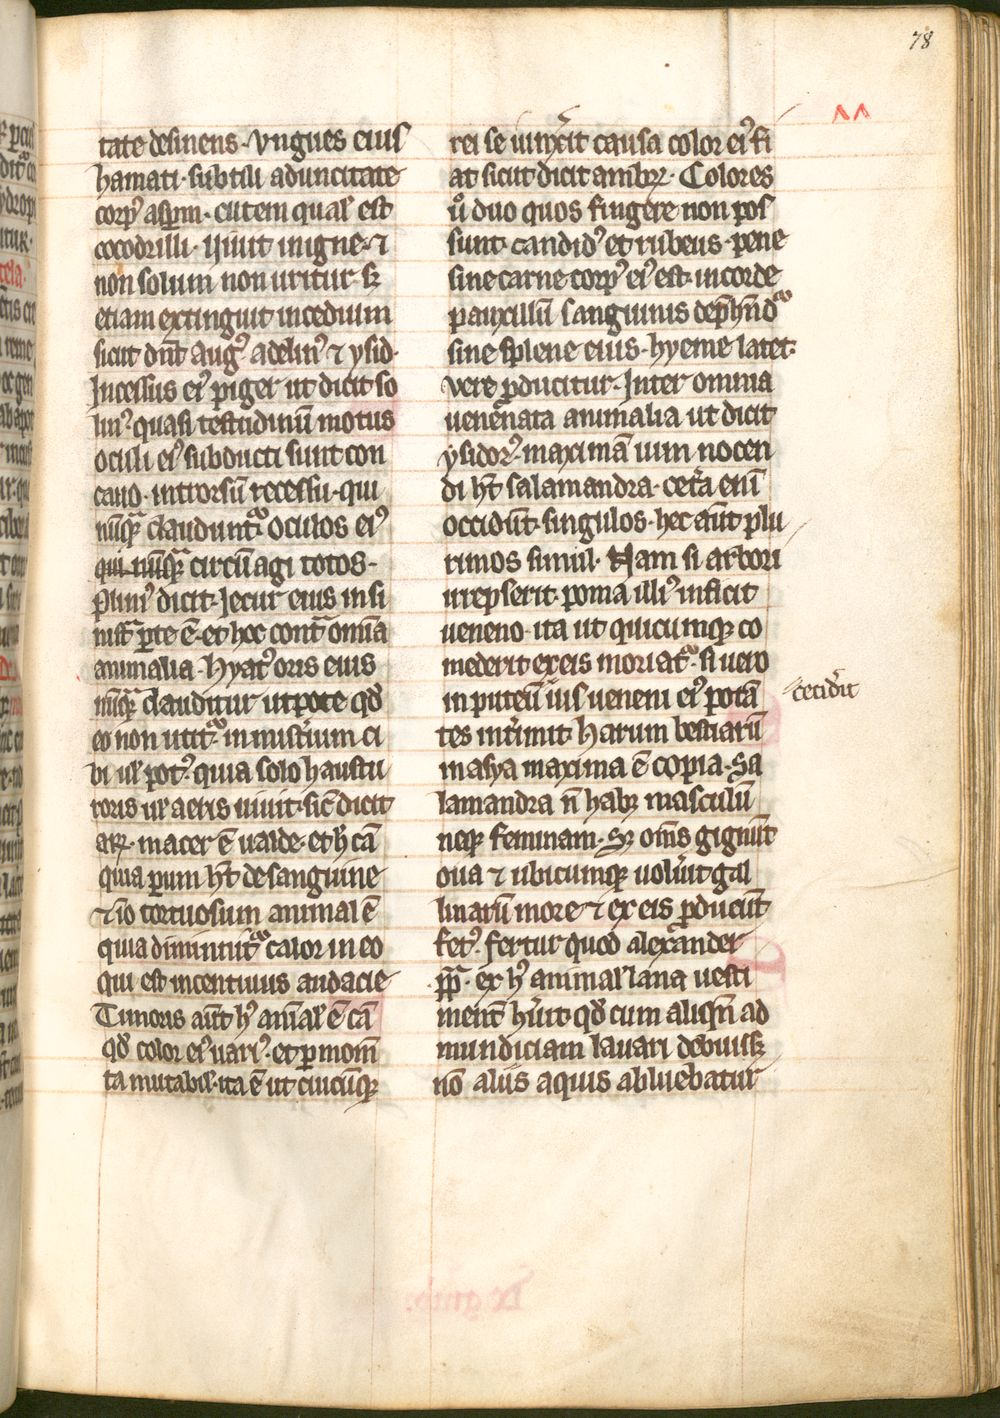 78
tate desinens. vngues eius
hamati. subtili aduncitate
corpꝰ asperum. cutem qualẽ est
cocodrilli. Hiuit in igne. ⁊
non solum non uritur. sꝫ
etiam extinguit incedium
sicut dnt̃ augꝰ adelinꝰ ⁊ ysid.
Incessus eiꝰ piger ut dicit so
linꝰ. quasi testudinũ motus
oculi eiꝰ subducti sunt con
cauo. introrsũ recessu. qui
nũqᷓ claudunt᷑ oculos eiꝰ
qui nũqᷓ circũagi totos.
Pliniꝰ dicit. Jecur eius in si
nistᷓ ꝑte ẽ. et hoc contᷓ omĩa
animalia. hyatꝰ oris eius
nũqᷓ clauditur utpote qđ
eo non utit᷑ in mist̾ium ci
bi uł potꝰ. quia solo haustu
roris uł aeris uiuit. sic̃ dicit
arꝝ. macer ẽ ualde. et h̾ cã
quia ꝑum ht̃ de sanguine
⁊ iõ tortuosum animal ẽ
quia diminuit᷑ calor in eo
qui est incentiuus audacie
Timoris aũt hꝰ anĩal ẽ cã
qđ color eiꝰ uariꝰ. et ꝑ momẽ
ta mutabił. ita ẽ ut cuicũqꝫ
rei se iunx̾it causa color eiꝰ fi
at sicut dicit ambꝝ. Colores
u̾ duo quos fingere non pos
sunt. candidꝰ et rubeus. pene
sine carne corpꝰ eiꝰ est. in corde
pauxillũ sanguinis dep̾hñd᷑
sine splene eius. hyeme latet.
vere ꝓducitur. Inter omnia
uenenata animalia ut dicit
ysidorꝰ. maximã uim nocen
di ht̃ salamandra. cet̾a enĩ
occidũt singulos. hec aũt plu
rimos simul. Nam si arbori
irrepserit. poma illiꝰ inficit
ueneno. ita ut quicumqꝫ co
mederit ex eis moriat᷑. si uero
in puteũ ius ueneni eiꝰ potã
cecid̾it
tes int̾imit. harum bestiarũ
in asya maxima ẽ copia. Sa
lamandra ñ habꝫ masculũ
neqꝫ feminam. Sꝫ om̃s gignũt
oua ⁊ ubicumqꝫ uolũt gal
linarũ more ⁊ ex eis ꝓducũt
fetꝰ. fertur quod alexander
ꝓpᷓ. ex hꝰ animał lana uesti
ment̃ h̾uit qđ cum aliqñ ad
mundiciam lauari debuissꝫ
nõ aliis aquis abluebatur